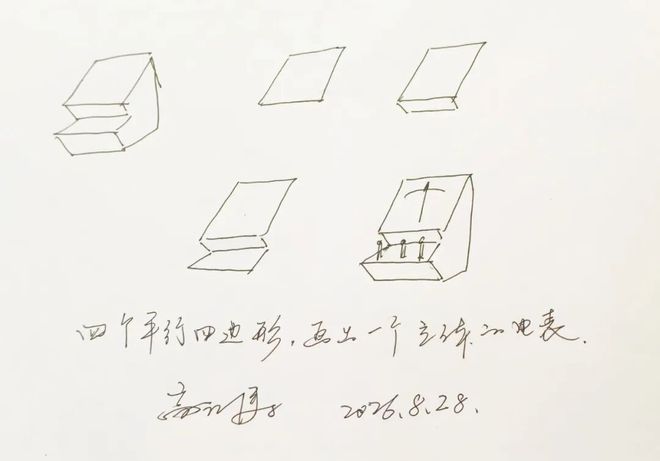 四个平行四边形，画出一个立体的电表.
2026.8.28.